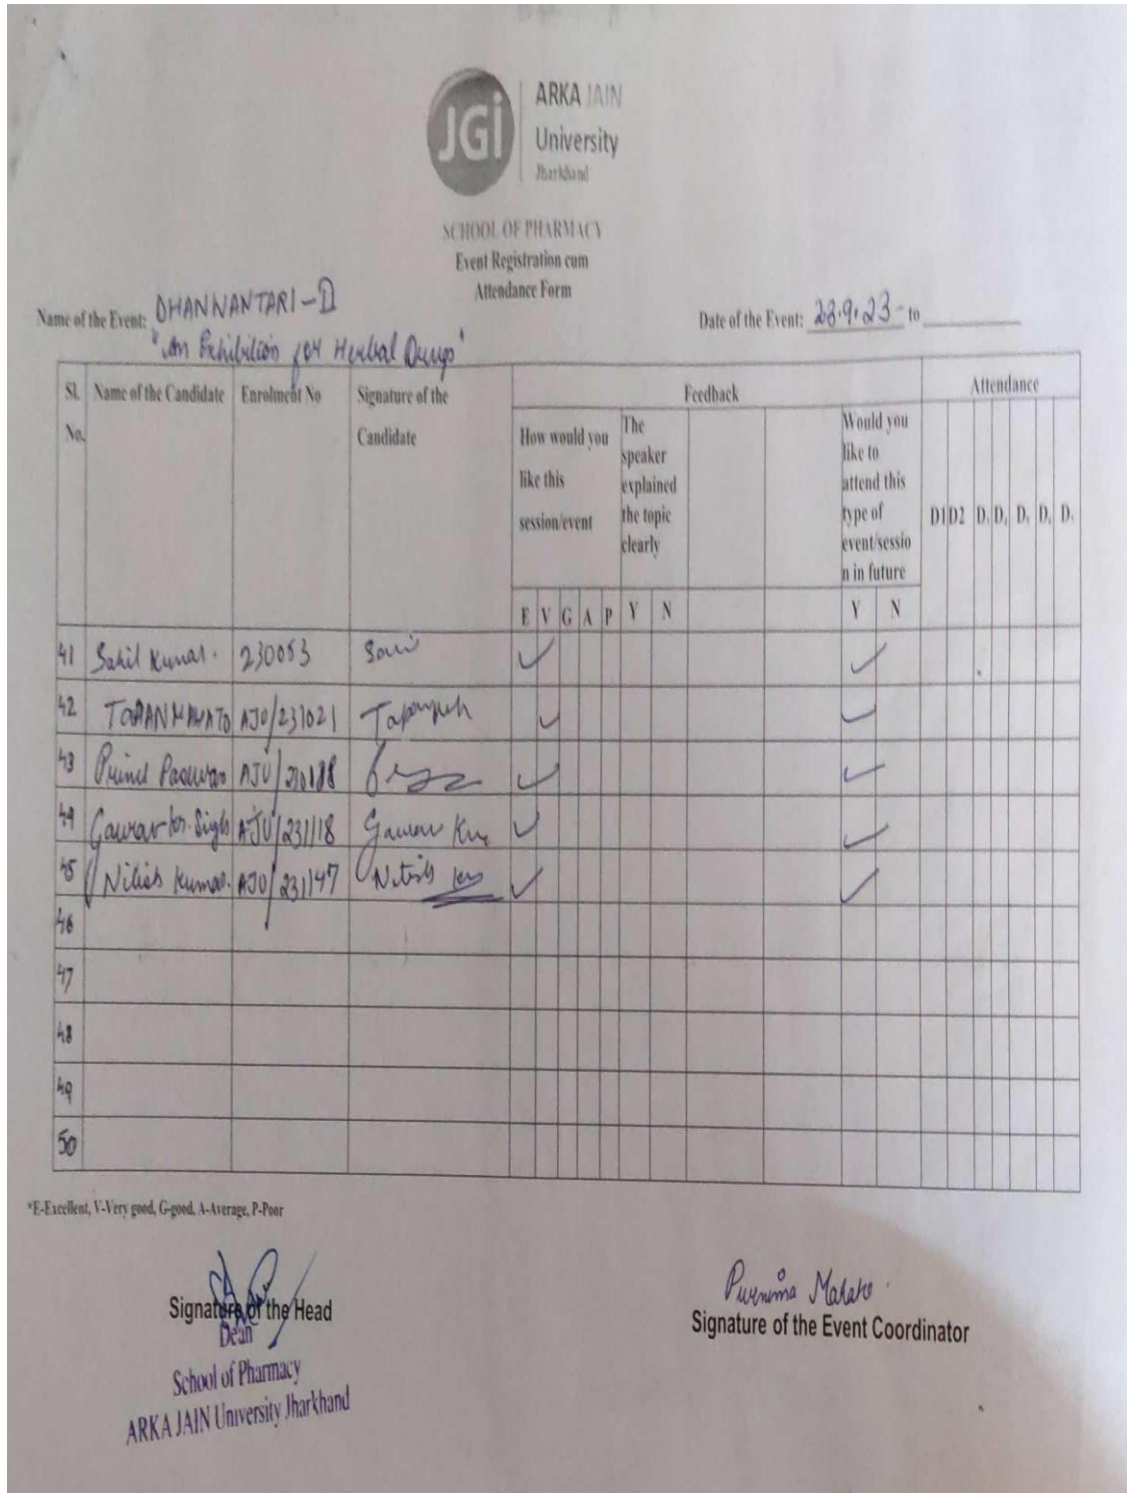 JGi
ARKA JAIN
University
Jharkhand
SCHOOL OF PHARMACY
Event Registration cum
Attendance Form
Name of the Event: DHANNANTARI-II
"An Exhibition for Herbal Drugs"
Date of the Event: 23.9.23 - to
Sl. No. Name of the Candidate Enrolment No Signature of the Candidate Feedback Attendance
How would you like this session/event
The speaker explained the topic clearly
Would you like to attend this type of event/session in future
D1 D2 D. D. D. D. D.
E V G A P Y N Y N
41 Sahil Kumar. 230053 ✓ ✓
42 TAPAN MAHATO AJU/231021 ✓ ✓
43 Prince Paswan AJU/ ✓ ✓
44 Gaurav kr. Singh AJU/231118 Gaurav ✓ ✓
45 Nitish Kumar. AJU/231147 Nitish ✓ ✓
46
47
48
49
50
*E-Excellent, V-Very good, G-good, A-Average, P-Poor
Signature of the Head
Dean
School of Pharmacy
ARKA JAIN University Jharkhand
Purnima Mahato.
Signature of the Event Coordinator